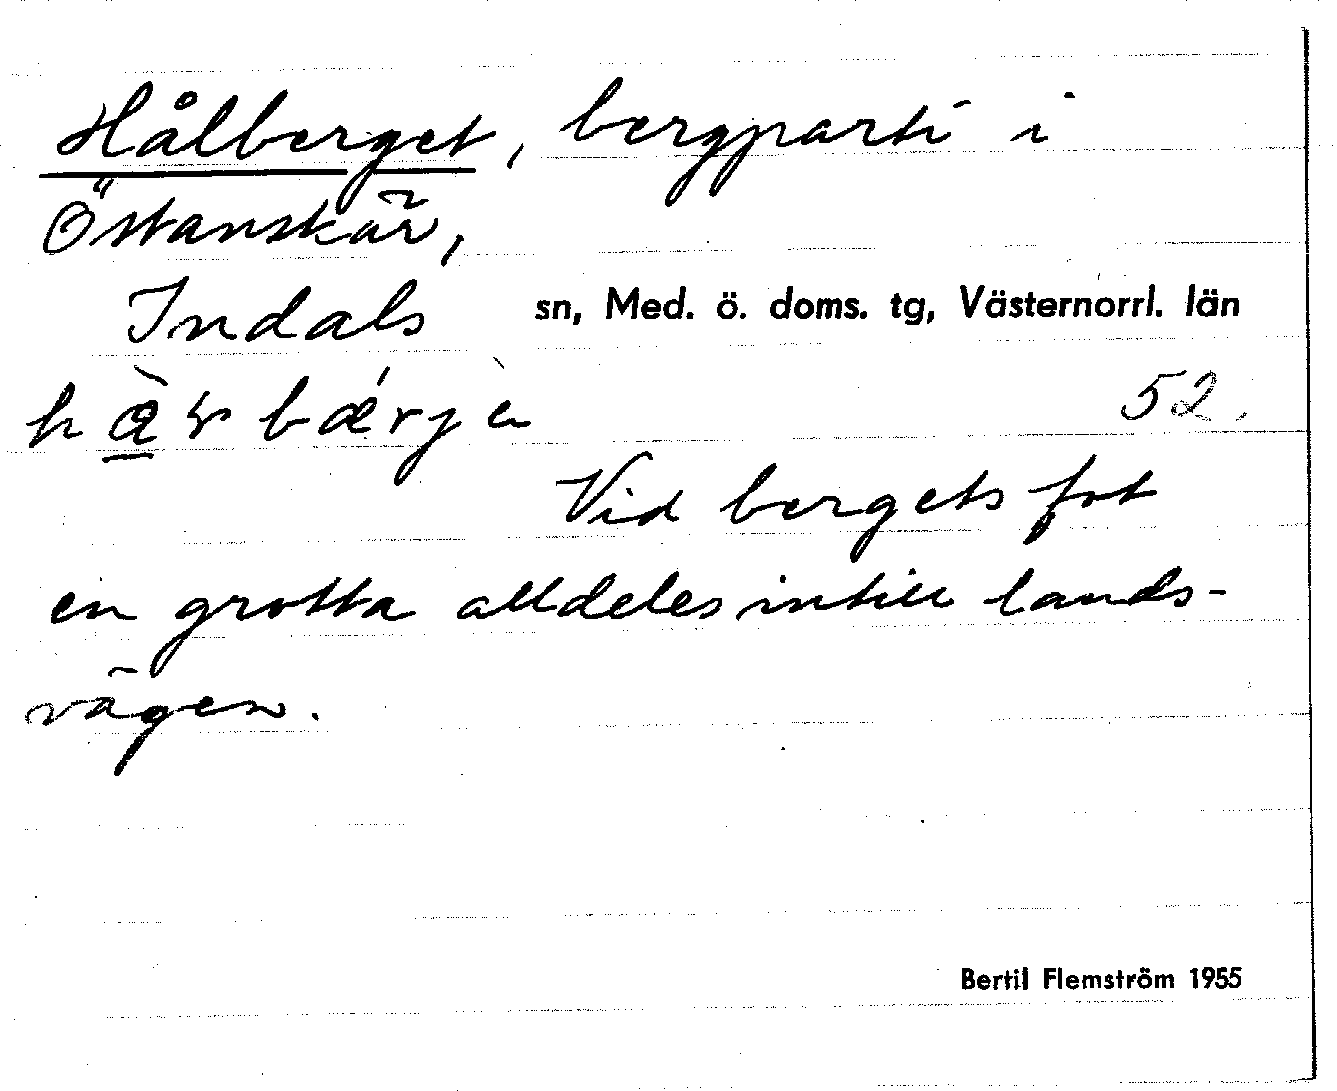 Hålberget, bergparti i
Östanskär,
Indals sn, Med. ö. doms. tg, Västernorrl. län
52.
Vid bergets fot
en grotta alldeles intill lands-
vägen.
Bertil Flemström 1955